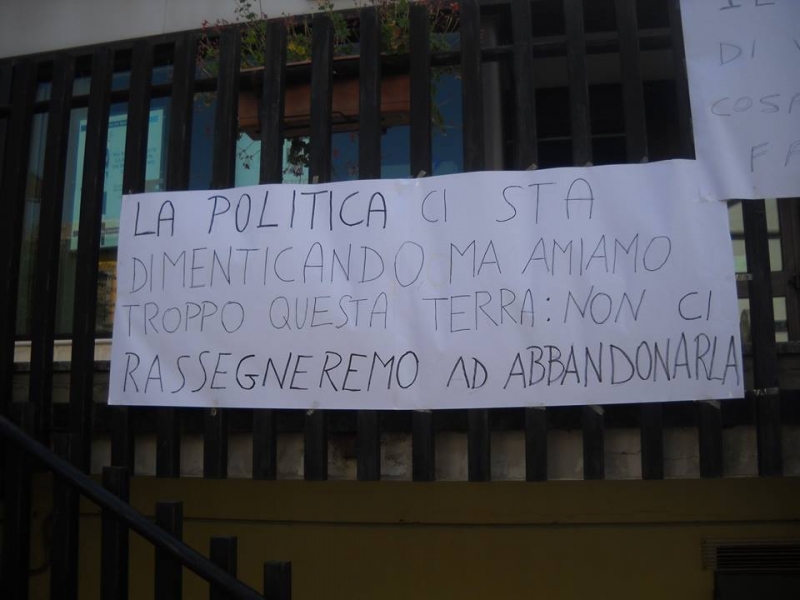 LA POLITICA CI STA
DIMENTICANDO MA AMIAMO
TROPPO QUESTA TERRA: NON CI
RASSEGNEREMO AD ABBANDONARLA
DI
COSA